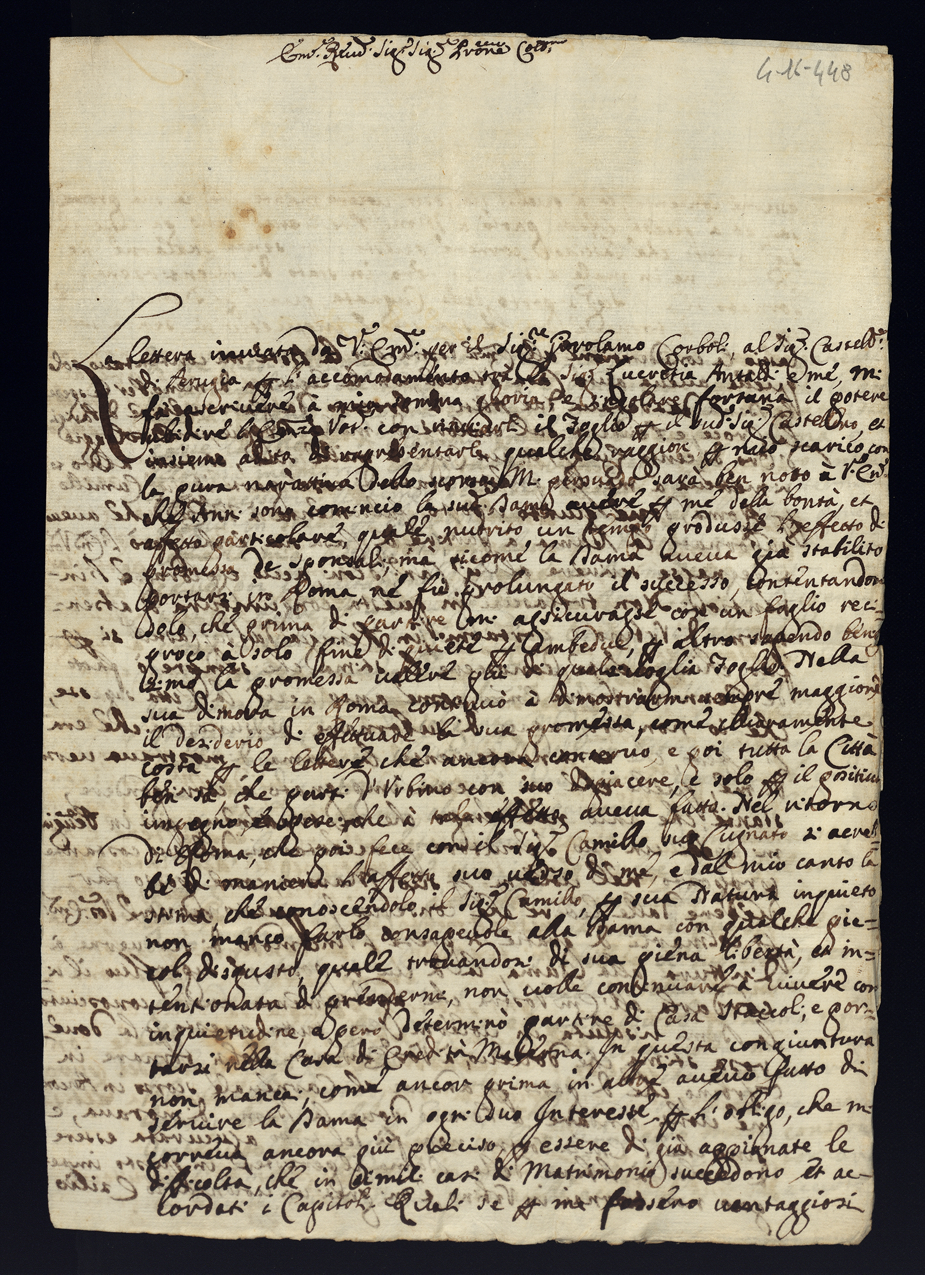 Em.mo Rev.mo Sig.r Sig.r P.rone Col.mo
4-16-448
La lettera inviata da V.ra Em.za per il Sig.r Girolamo Corboli, al Sig.r Castell.o
di Perugia per l'accomodamento trà la Sig.ra Lucretia Antaldi e mé, mi
fà ascrivere à mia somma gloria, e singolare fortuna il potere
ubidire l'Em.za Vos. con mandarli il Foglio per il sud.o Sig.r Castellano, et
insieme ardita di rapresentarle qualche raggion per mio scarico con
la pura narativa dello scorso. M. persuado sarà ben noto à V. Em.za
ché Anni sono comincio la sud.a Dama avere per mé della bontà, et
affetto particolare, quale nutrito un tempo produsse l'effetto di
promessa de sponsali, mà sicomé la Dama aveva già stabilito
portarsi in Roma, né fù prolungato il successo, contentandosi
solo, che prima di partire mi assicurasse con un foglio reci-
proco à solo fine di quiete per l'ambedui, per altro sapendo beniss-
simo la promessa valere più di qualsivoglia Foglio. Nella
sua dimora in Roma continuò à dimostrarmi sempre maggiore
il desiderio di effettuare la sua promessa, comé chiaramente
costa per le lettere che ancora conservo, e poi tutta la Città
ben sà, che partì d'Urbino con suo dispiacere, e solo per il positivo
impegno, che aveva fatto. Nel ritorno
di Roma, che poi fece con il Sig.r Camillo suo Cugnato si acreb-
be di maniera l'affetto suo verso di mé, e dal mio canto la
stima, ché conoscendolo il Sig.r Camillo, per sua Natura inquieto
non mancò farlo consapevole alla Dama con qualche pic-
coli disgusto, quale trovandosi di sua piena libertà, ed in-
tentionata di prendermi, non volle continuare à vivere con
inquietudine, e però determinò partire di Casa Staccoli, e por-
tarsi nella Casa di Eredità Materna. In questa congiuntura
non mancai, comé ancor prima in altre avevo fatto di
servire la Dama in ogni suo Interesse per l'obligo, che mi
correva ancora più preciso, per essere di già appianate le
difficoltà, ché in simili casi di Matrimonio succedono et ac-
cordati i Capitoli. Quali se per me fossero vantaggiosi